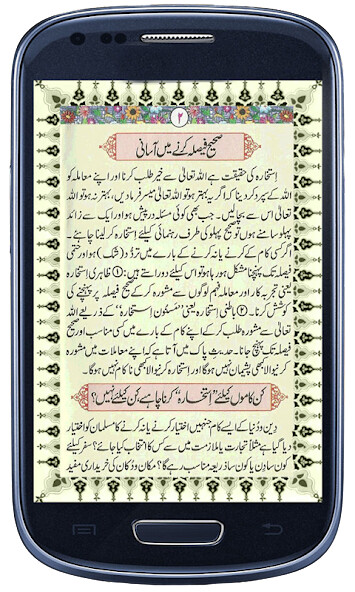 ۲
صحیح فیصلہ کرنے میں آسانی
اِستخارہ کی حقیقت ہے اللہ تعالیٰ سے خیر طلب کرنا اور اپنے معاملہ کو
اللہ کے سپرد کردینا کہ اگر یہ بہتر ہو تو اللہ تعالیٰ میسر فرمادیں، بہتر نہ ہو تو اللہ
تعالیٰ اس سے بچالیں۔ جب بھی کوئی مسئلہ درپیش ہو اور ایک سے زائد
پہلو سامنے ہوں تو صحیح پہلو کی طرف رہنمائی کیلئے اِستخارہ کرلینا چاہئے۔
اگر کسی کام کے کرنے یا نہ کرنے کے بارے میں تردُّد (شک) ہو اور حتمی
فیصلہ تک پہنچنا مشکل ہو رہا ہو تو اس کیلئے دو راستے ہیں: ① ظاہری اِستخارہ
یعنی تجربہ کار اور معاملہ فہم لوگوں سے مشورہ کرکے صحیح فیصلہ پر پہنچنے کی
کوشش کرنا۔ ② باطنی اِستخارہ یعنی ”مسنون اِستخارہ“ کے ذریعے اللہ
تعالیٰ سے مشورہ طلب کرکے اپنے کام کے بارے میں کسی مناسب اور صحیح
فیصلہ تک پہنچ جانا۔ حدیثِ پاک میں آتا ہے کہ اپنے معاملات میں مشورہ
کرنیوالا کبھی پشیمان نہیں ہوگا اور اِستخارہ کرنیوالا کبھی ناکام نہیں ہوگا۔
کن کاموں کیلئے ”اِستخارہ“ کرنا چاہے، کن کیلئے نہیں؟
دین و دُنیا کے ایسے کام جنہیں اختیار کرنے یا نہ کرنے کا مسلمان کو اختیار
دیا گیا ہے مثلاً تجارت یا ملازمت میں سے کس کا انتخاب کیا جائے؟ سفر کیلئے
کون سا دِن یا کون سا ذریعہ مناسب رہے گا؟ مکان و دُکان کی خریداری مفید